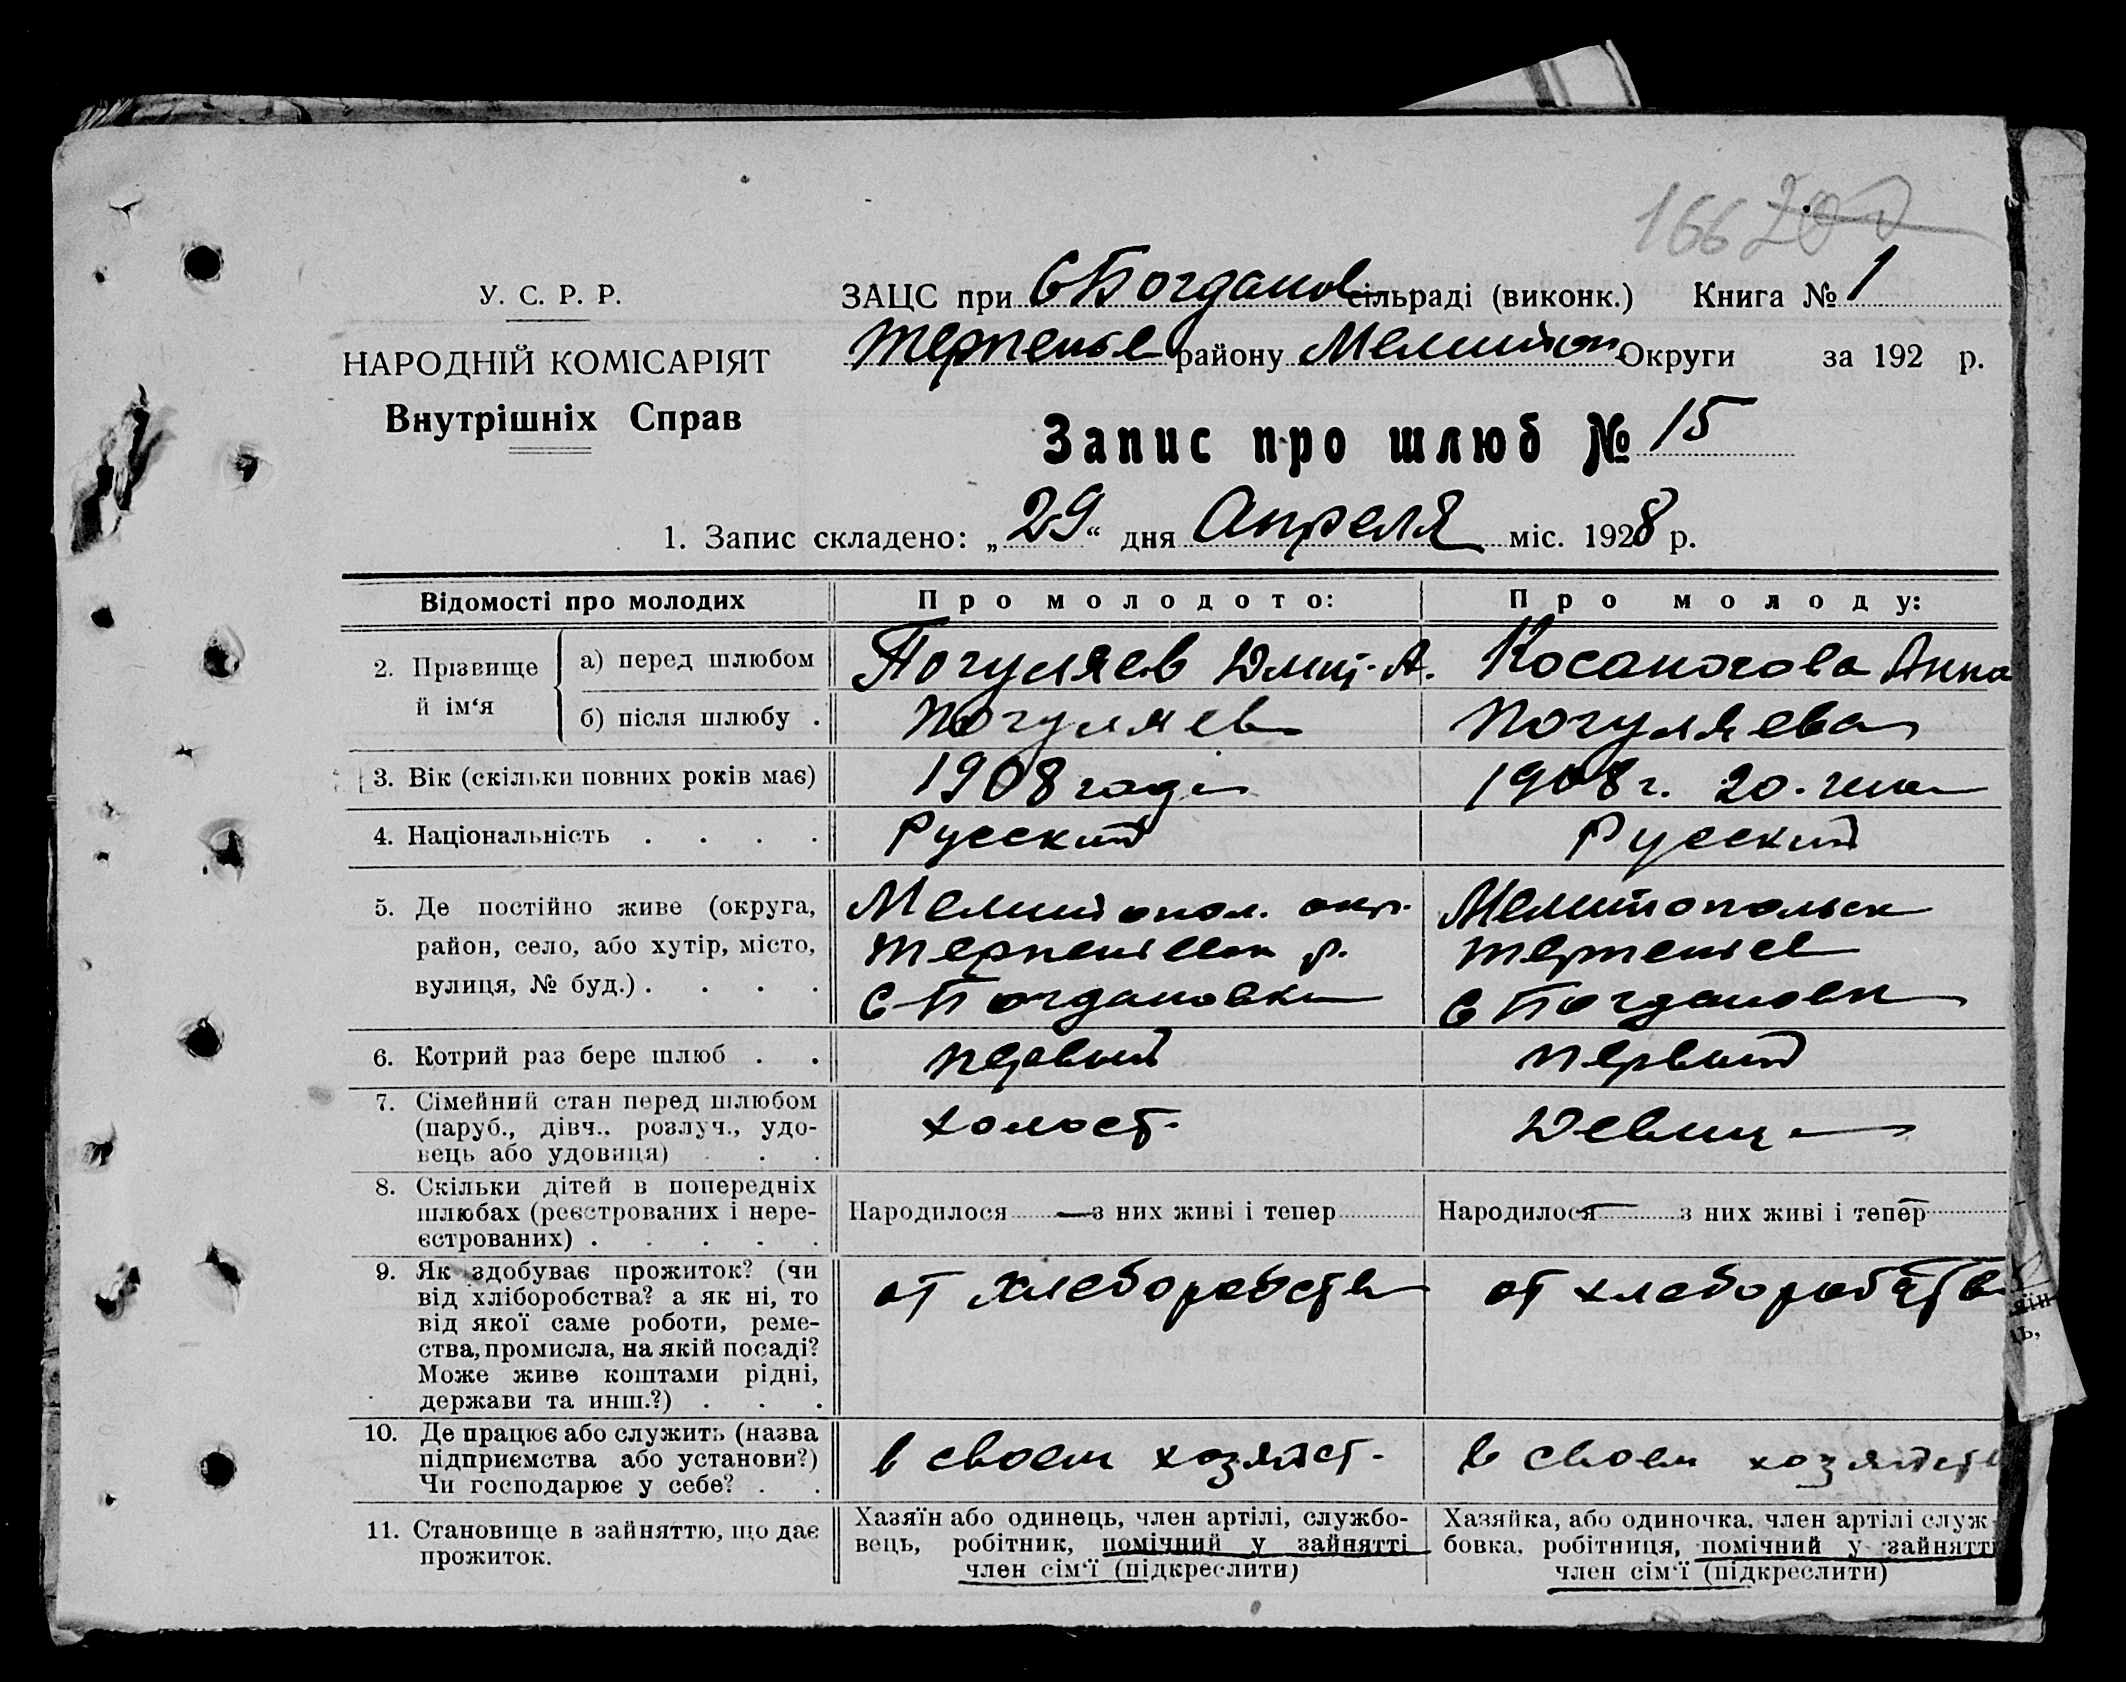 166 200
У. С. Р. Р.
НАРОДНІЙ КОМІСАРІЯТ
Внутрішніх Справ
ЗАЦС при С Богданов сільраді (виконк.) Книга № 1
Терпенье району Мелитоп Округи за 192 р.
Запис про шлюб № 15
1. Запис складено: „29“ дня Апреля міс. 1928 р.
Відомості про молодих Про молодого: Про молоду:
2. Прізвище й ім‘я
а) перед шлюбом Погуляев Дмит. А. Косоногова Анна
б) після шлюбу . Погуляев Погуляева
3. Вік (скільки повних років має) 1908 года 1908 г. 20.
4. Національність . . . . Русский Русский
5. Де постійно живе (округа, Мелитопол. окр. Мелитопольск
район, село, або хутір, місто, Терпеньевск р. Терпеньев
вулиця, № буд.) . . . . С-Богдановки С Богдановк
6. Котрий раз бере шлюб . . первый первый
7. Сімейний стан перед шлюбом
(паруб., дівч., розлуч., удо- холост. Девица
вець або удовиця) . . .
8. Скільки дітей в попередніх
шлюбах (реєстрованих і нере- Народилося — з них живі і тепер Народилося — з них живі і тепер
єстрованих) . . . . .
9. Як здобуває прожиток? (чи от хлеборобства от хлеборобства
від хліборобства? а як ні, то
від якої саме роботи, реме-
ства, промисла, на якій посаді?
Може живе коштами рідні,
держави та инш.?) . . .
10. Де працює або служить (назва
підприємства або установи?) в своем хозяйст. в своем хозяйств
Чи господарює у себе? . .
11. Становище в зайняттю, що дає
прожиток.
Хазяїн або одинець, член артілі, службо-
вець, робітник, помічний у зайнятті
член сім‘ї (підкреслити)
Хазяйка, або одиночка, член артілі служ
бовка, робітниця, помічний у зайнятті
член сім‘ї (підкреслити)